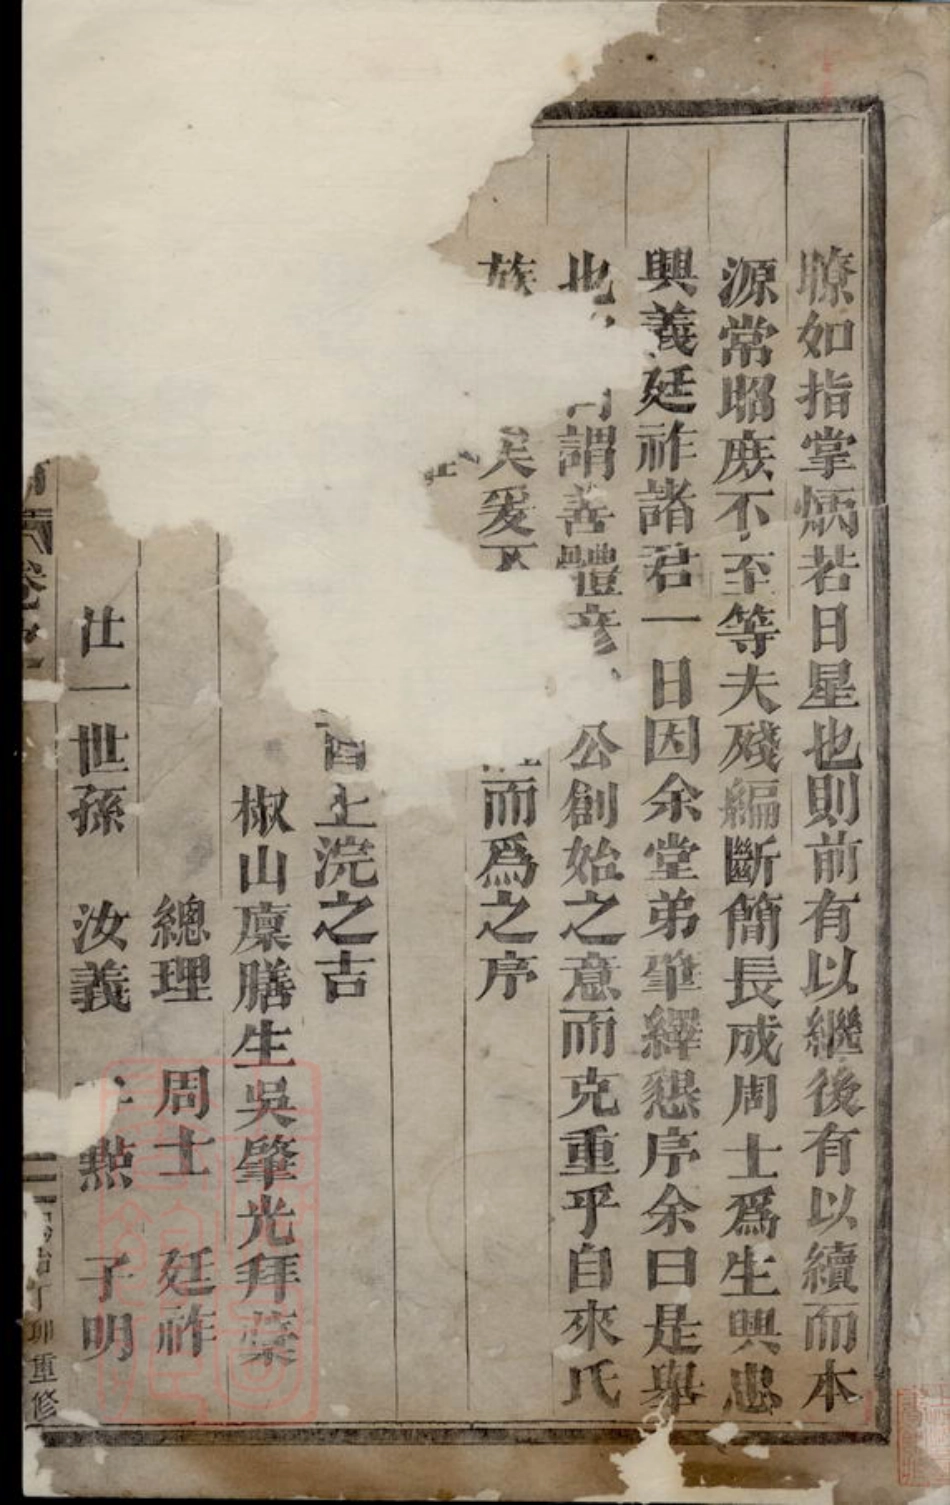 瞭如指掌炳若日星也則前有以繼後有以續而本
源常昭庶不至等夫殘編斷簡長成周士為生興忠
興義廷祚諸君一日因余堂弟肇繹懇序余曰是舉
也 謂善體彦 公創始之意而克重乎自來氏
族 矣爰 而為之序
上浣之吉
椒山廩膳生吳肇光拜藁
總理 周士 廷祚
廿一世孫 汝義 子明
重修